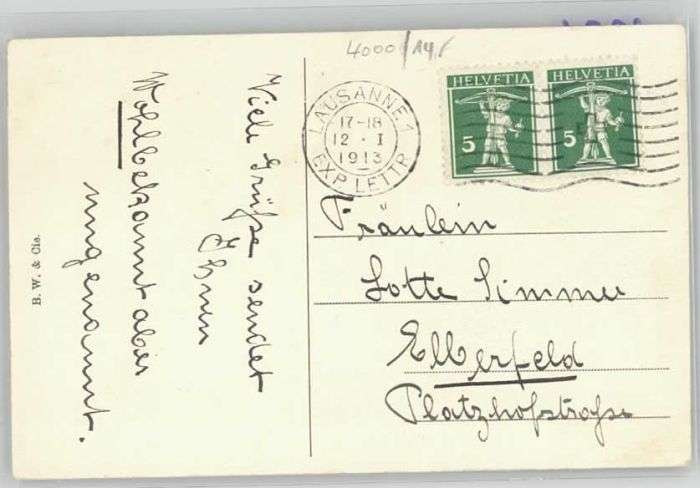 4000/14
Viele Grüße sendet
Ihnen
Wohlbekannt aber
ungenannt.
B. W. & Cie.
LAUSANNE.1
17-18
12 · I
1913
EXP. LETTR.
HELVETIA HELVETIA
5 5
Fräulein
Lotte Simmer
Elberfeld
Platzhofstraße